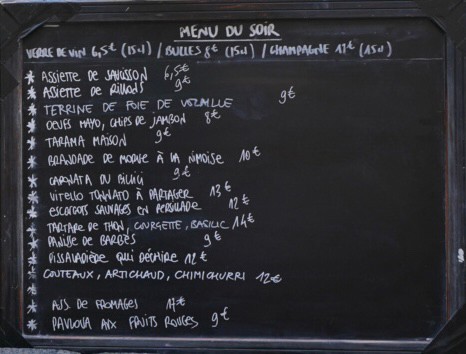 MENU DU SOIR
VERRE DE VIN 6,5€ (15cl) / BULLES 8€ (15cl) / CHAMPAGNE 11€ (15cl)
* ASSIETTE DE SAUCISSON 6,5€
* ASSIETTE DE RILLONS 9€
* TERRINE DE FOIE DE VOLAILLE 9€
* OEUFS MAYO, CHIPS DE JAMBON 8€
* TARAMA MAISON 9€
* BRANDADE DE MORUE À LA NIMOISE 10€
* CAPONATA DU 9€
* VITELLO TONNATO À PARTAGER 13€
* ESCARGOTS SAUVAGES EN PERSILLADE 12€
* TARTARE DE THON, COURGETTE, BASILIC 14€
* PANISSE DE BARBÈS 9€
* PISSALADIÈRE QUI DÉCHIRE 12€
* COUTEAUX, ARTICHAUD, CHIMICHURRI 12€
*
* ASS. DE FROMAGES 17€
* PAVLOVA AUX FRUITS ROUGES 9€